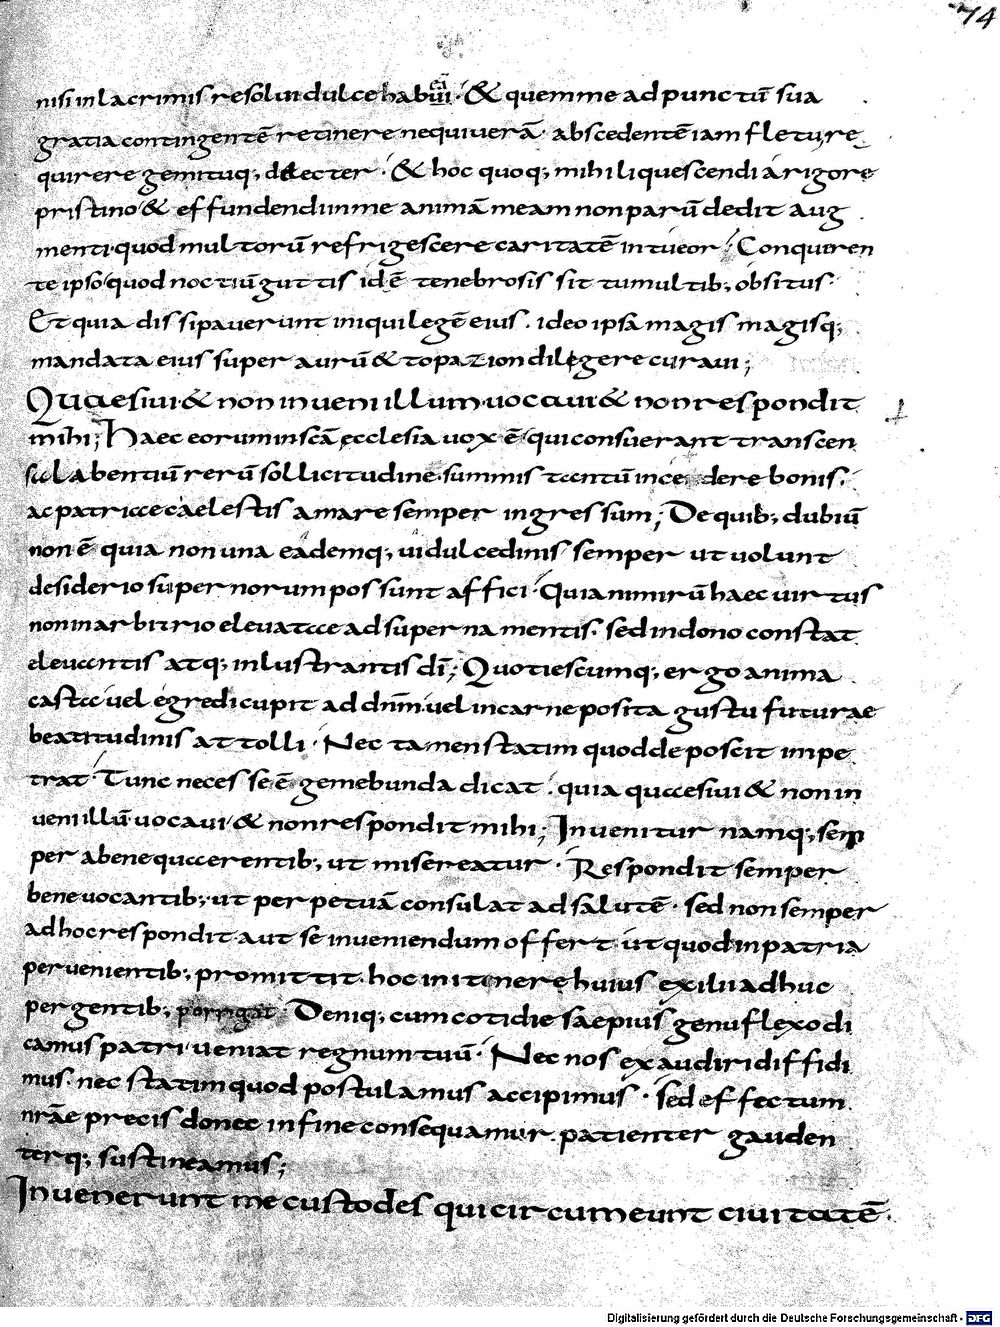 74
nisi in lacrimis resolui dulce habui · & quem me ad punctū sua
gratia contingentē retinere nequiuerā · abscedentē iam fletu re
quirere gemituq; delecter · & hoc quoq; mihi liquescendi a rigore
pristino & effundendi in me animā meam non parū dedit aug
menti · quod multorū refrigescere caritatē intueor · Conqueren
te ipso quod noctiū guttis id ē tenebrosis sit tumultib; obsitus ·
Et quia dissipauerunt iniqui legē eius · ideo ipsa magis magisq;
mandata eius super aurū & topazion diligere curaui;
Quaesiui & non inueni illum uocaui & non respondit
mihi; Haec eorum in scā ecclesia uox ē · qui consuerant transcen
sa labentiū rerū sollicitudine · summis tantū incedere bonis ·
ac patriae caelestis amare semper ingressum; De quib; dubiū
non ē quia non una eademq; ui dulcedinis semper ut uolunt
desiderio supernorum possunt affici · Quia nimirū haec uirtus
non in arbitrio eleuatae ad superna mentis · sed in dono constat
eleuantis atq; inlustrantis dī; Quotiescumq; ergo anima
casta uel egredi cupit ad dnm̄ · uel in carne posita gustu futurae
beatitudinis attolli · Nec tamen statim quod deposcit impe
trat · Tunc necesse ē gemebunda dicat · quia quaesiui & non in
ueni illū uocaui · & non respondit mihi; Inuenitur namq; sem
per a bene quaerentib; ut misereatur · Respondit semper
bene uocantib; ut perpetuā consulat ad salutē · sed non semper
ad hoc respondit aut se inueniendum offert · ut quod in patria
peruenientib; promittit · hoc in itinere huius exilii adhuc
pergentib; porrigat · Deniq; cum cotidie saepius genu flexo di
camus patri · ueniat regnum tuū · Nec nos exaudiri diffidi
mus · nec statim quod postulamus accipimus · sed effectum
nrāe precis donec in fine consequamur · patienter gauden
terq; sustineamus;
Inuenerunt me custodes qui circumeunt ciuitatē ·
Digitalisierung gefördert durch die Deutsche Forschungsgemeinschaft - DFG